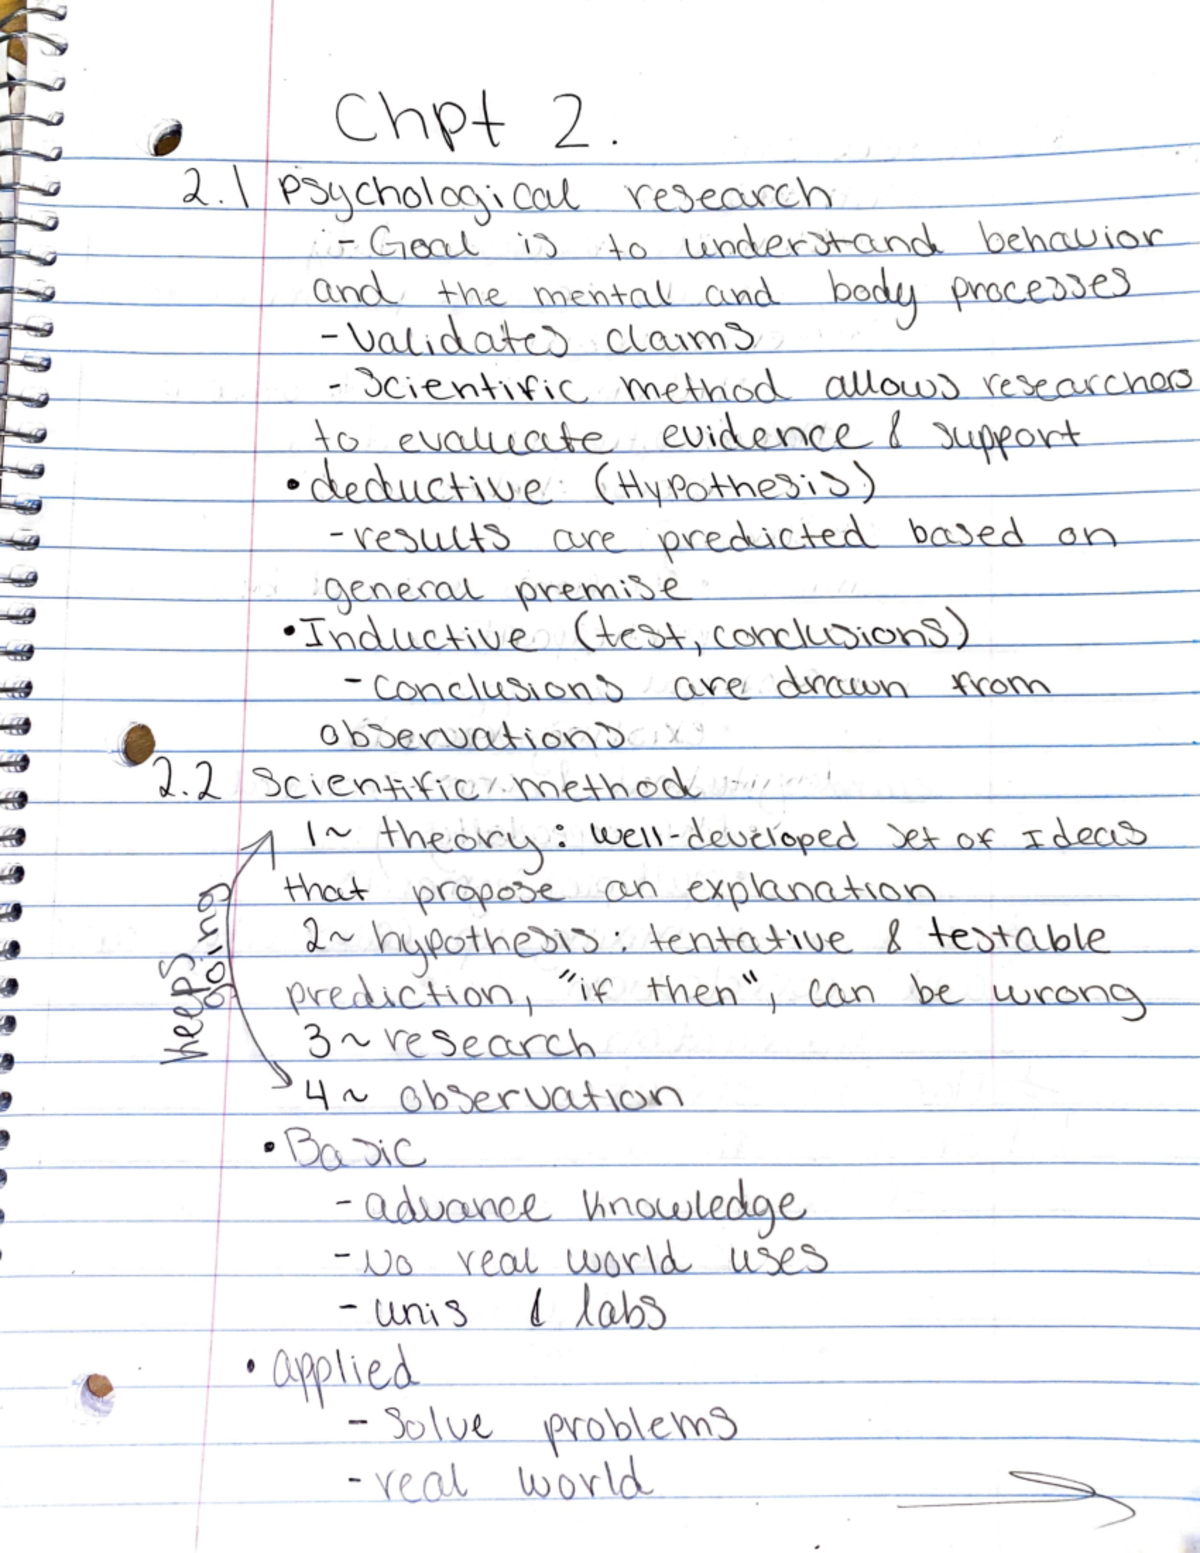 Chpt 2.
2.1 Psychological research
- Goal is to understand behavior
and the mental and body processes
- Validates claims
- Scientific method allows researchers
to evaluate evidence & support
• deductive (Hypothesis)
- results are predicted based on
general premise
• Inductive (test, conclusions)
- conclusions are drawn from
observations
2.2 Scientific method
1~ theory: well-developed set of Ideas
that propose an explanation
2~ hypothesis: tentative & testable
prediction, "if then", can be wrong
3~ research
4~ observation
keeps
going
• Basic
- advance knowledge
- No real world uses
- unis & labs
• applied
- solve problems
- real world